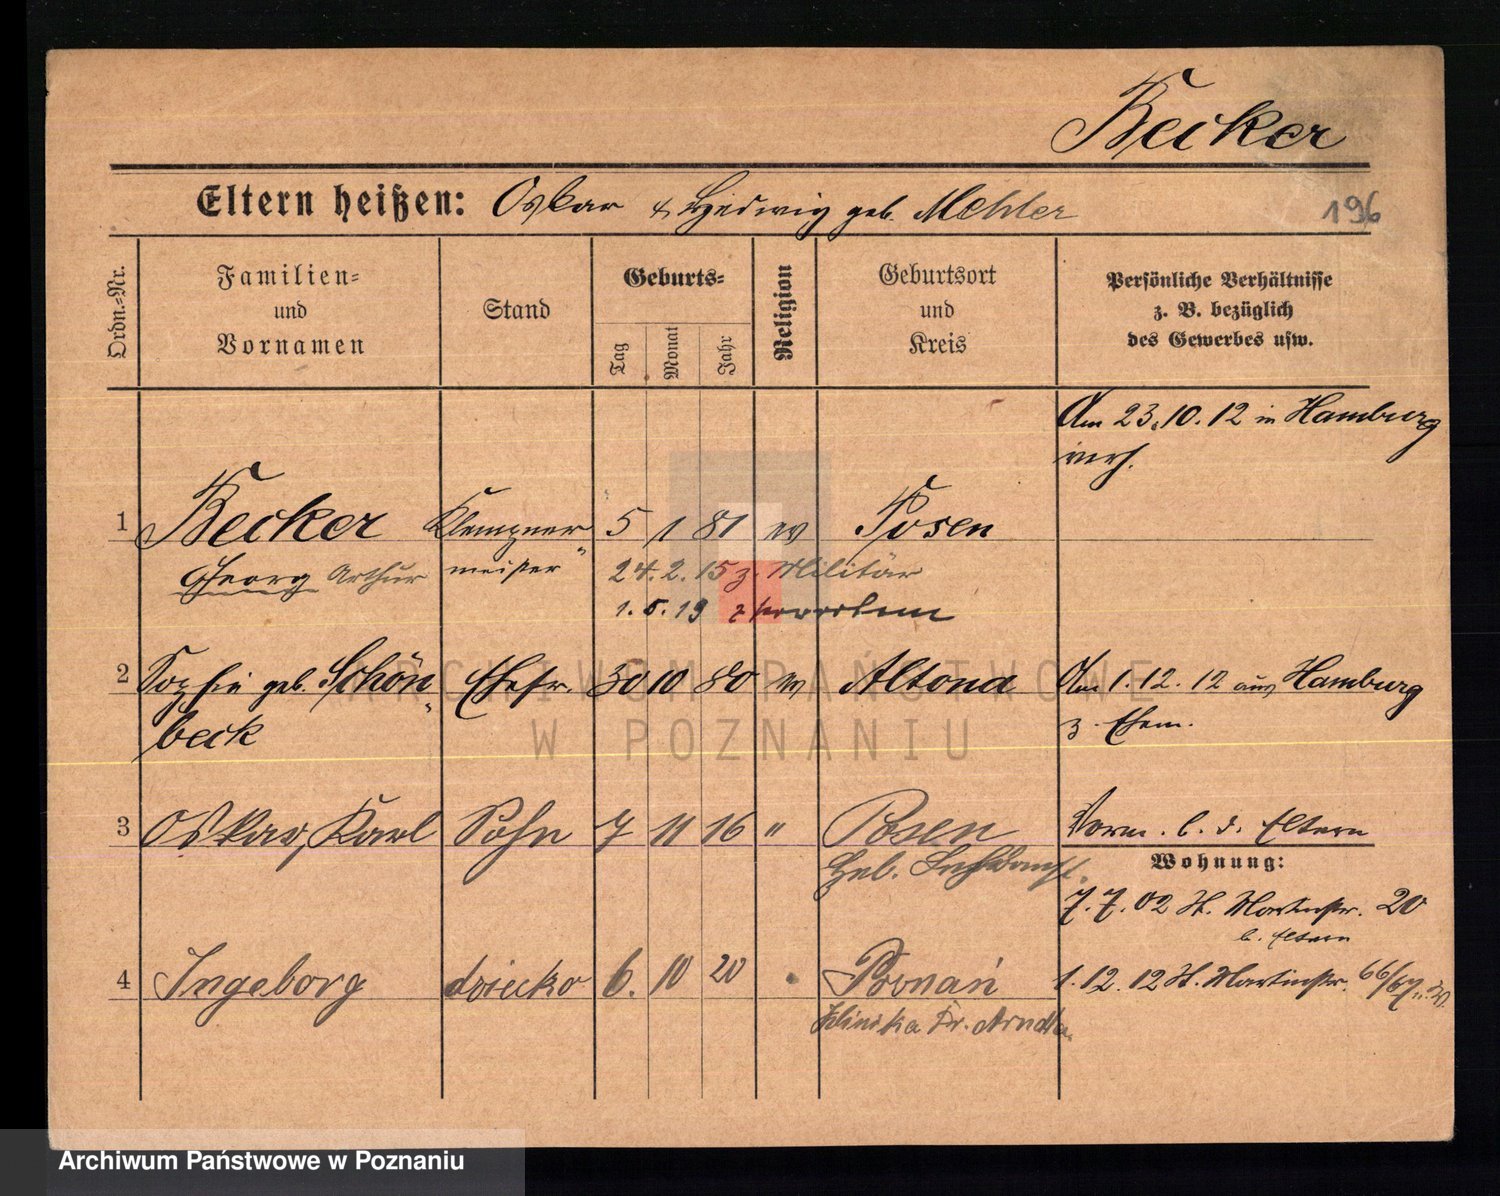 Becker
Eltern heißen: Oskar & Hedwig geb. Mehler
196
Ordn.-Nr.
Familien-
und
Vornamen
Stand
Geburts-
Tag
Monat
Jahr
Religion
Geburtsort
und
Kreis
Persönliche Verhältnisse
z. B. bezüglich
des Gewerbes usw.
Am 23.10.12 in Hamburg
verh.
1 Becker Klempner 5 1 81 ev Posen
Georg Arthur meister 24.2.15 z. Militär
1.5.19
2 Sophie geb. Schön Ehefr. 30 10 80 ev Altona Am 1.12.12 aus Hamburg
beck z. Ehem.
3 Oskar, Karl Sohn 7 11 16 " Posen Vorm. b. d. Eltern
Geb.
Wohnung:
7.7.02 St. Martinstr. 20
b. Eltern
4 Ingeborg dziecko 6. 10 20 Poznań 1.12.12 St. Martinstr. 66/67
Klinika Dr. Arndta
ARCHIWUM PAŃSTWOWE
W POZNANIU
Archiwum Państwowe w Poznaniu